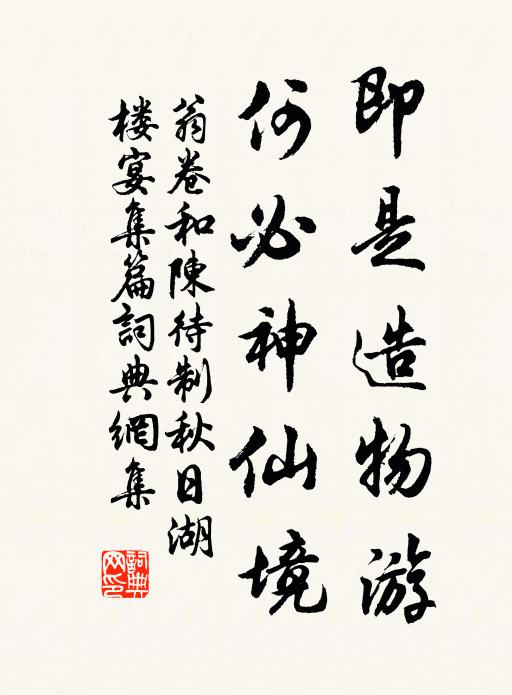 即是造物游
何必神仙境
翁卷和陳待制秋日湖
楼宴集篇詞典網集
詞典
网印